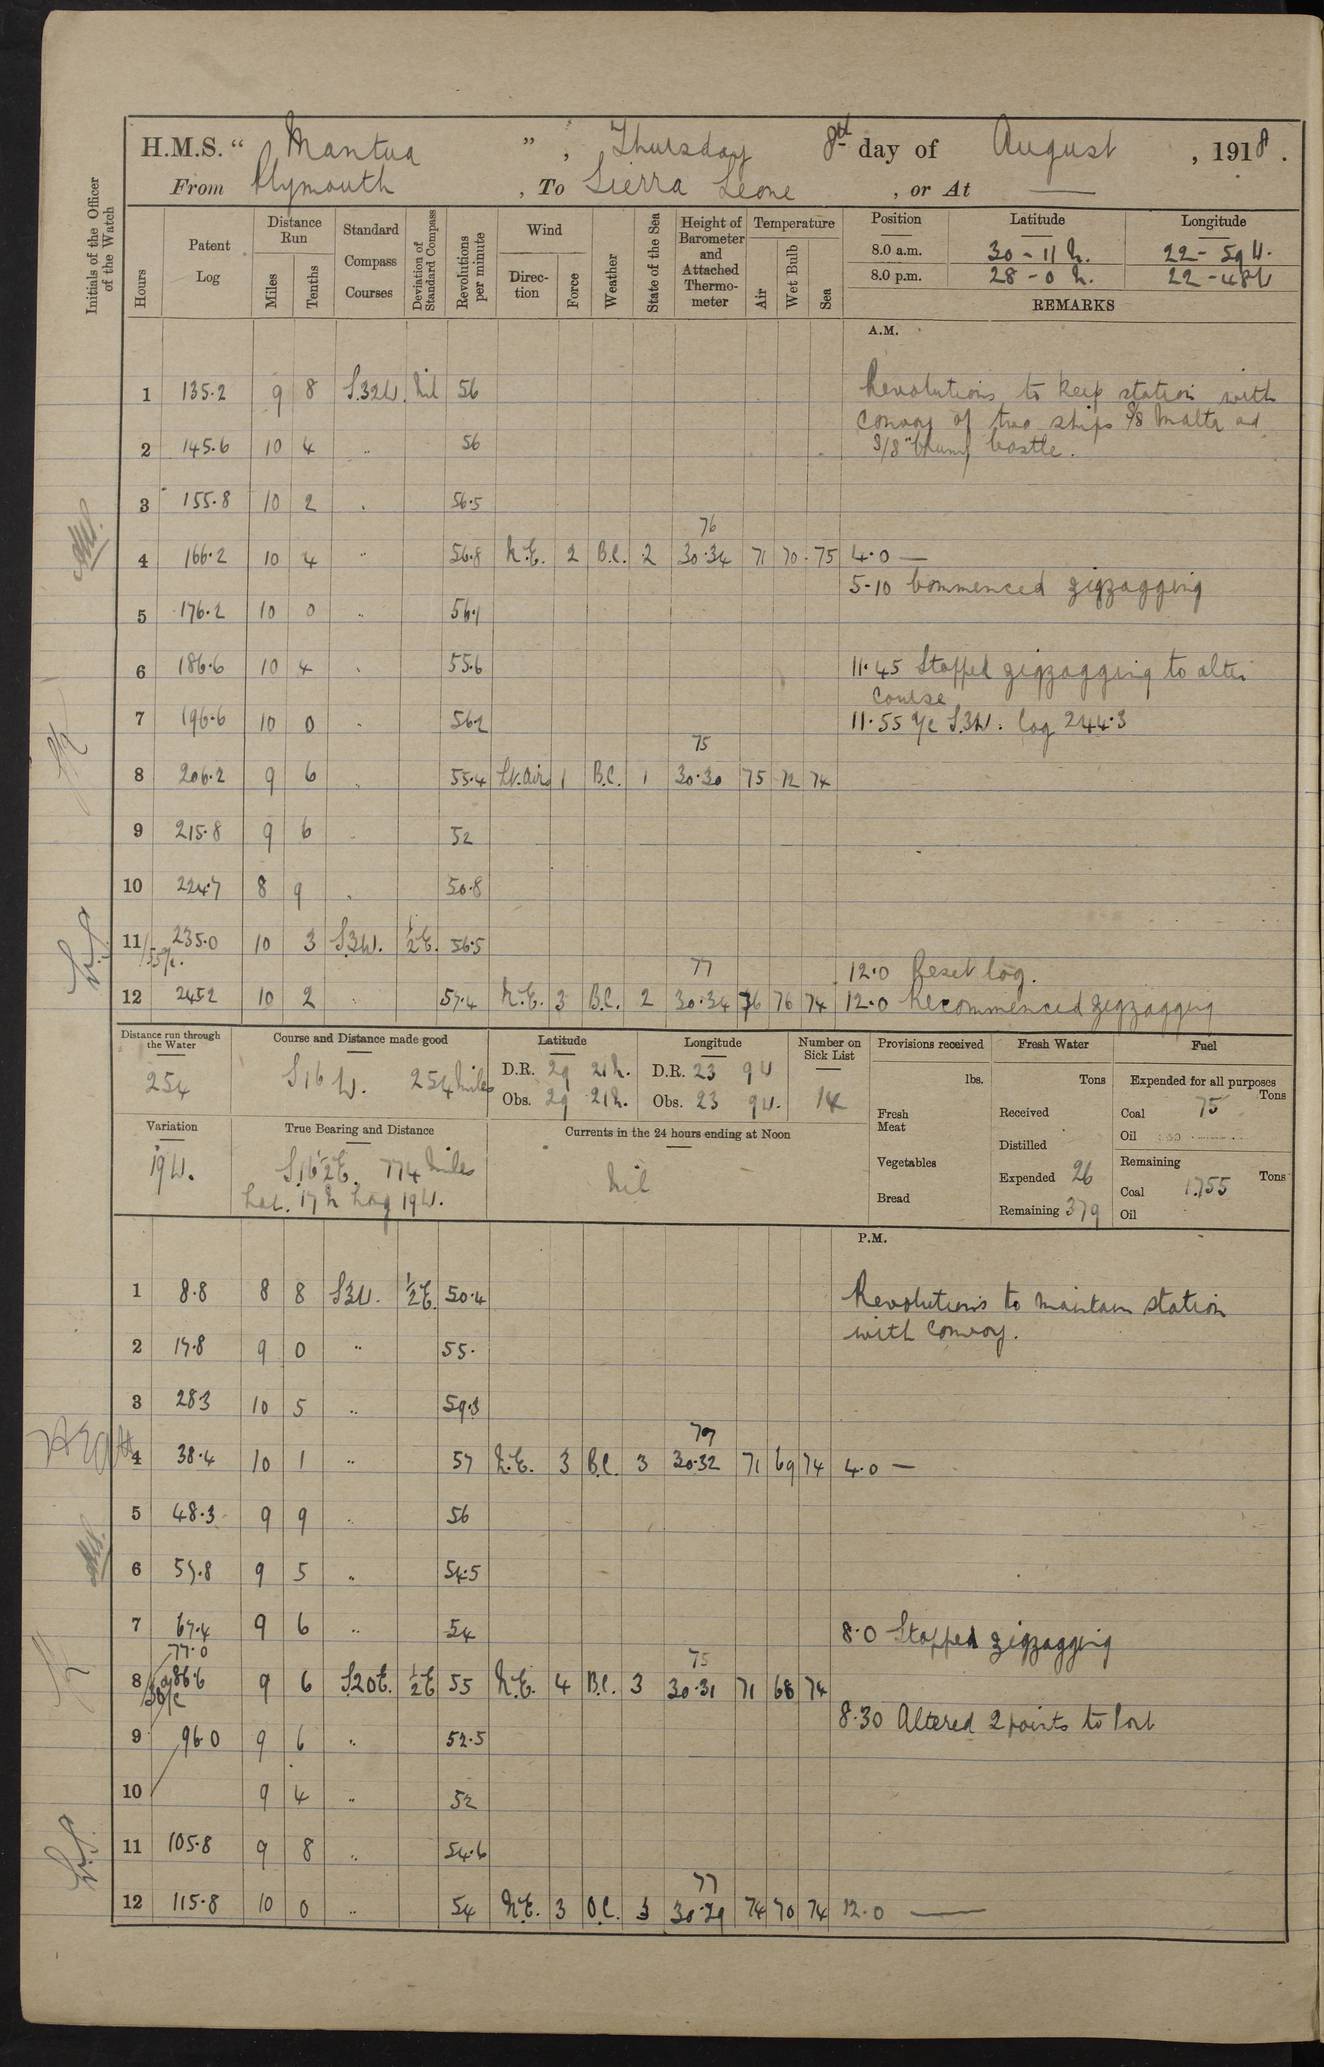 H.M.S. " Mantua " , Thursday 8th day of August , 1918 .
From Plymouth , To Sierra Leone , or At —
Initials of the Officer of the Watch
Hours Patent Log Distance Run Miles Tenths Standard Compass Courses Deviation of Standard Compass Revolutions per minute Wind Direction Force Weather State of the Sea Height of Barometer and Attached Thermometer Temperature Air Wet Bulb Sea Position Latitude Longitude
8.0 a.m. 30 - 11 N. 22 - 59 W.
8.0 p.m. 28 - 0 N. 22 - 48 W
REMARKS
A.M.
1 135.2 9 8 S.32W. Nil 56 Revolutions to keep station with
convoy of two ships S/S Malta and
2 145.6 10 4 " 56 S/S Kenilworth Castle.
3 155.8 10 2 " 56.5
76
4 166.2 10 4 " 56.8 N.E. 2 B.C. 2 30.34 71 70 75 4.0 —
5-10 Commenced zigzagging
5 176.2 10 0 " 56.1
6 186.6 10 4 " 55.6 11.45 Stopped zigzagging to alter
course
7 196.6 10 0 " 56.2 11.55 A/c S.3W. log 244.3
75
8 206.2 9 6 " 55.4 Lt. Airs 1 B.C. 1 30.30 75 72 74
9 215.8 9 6 " 52
10 224.7 8 9 " 50.8
11 235.0 10 3 S.3W. ½E. 56.5
/55 A/c. 77 12.0 Reset log.
12 245.2 10 2 " 57.4 N.E. 3 B.C. 2 30.34 76 76 74 12.0 Recommenced zigzagging
Distance run through the Water 254
Course and Distance made good S 16 W. 254 Miles
Latitude D.R. 29 21 N. Obs. 29 21 N.
Longitude D.R. 23 9 W Obs. 23 9 W.
Number on Sick List 14
Provisions received lbs. Fresh Meat Vegetables Bread
Fresh Water Tons Received Distilled Expended 26 Remaining 379
Fuel Expended for all purposes Tons Coal 75 Oil
Remaining Tons Coal 1755 Oil
Variation 19 W.
True Bearing and Distance S.16½E. 774 Miles
Lat. 17 N Long 19 W.
Currents in the 24 hours ending at Noon
Nil
P.M.
1 8.8 8 8 S3W. ½E. 50.4 Revolutions to maintain station
with convoy.
2 17.8 9 0 " 55.
3 28.3 10 5 " 59.3
77
4 38.4 10 1 " 57 N.E. 3 B.C. 3 30.32 71 69 74 4.0 —
5 48.3 9 9 " 56
6 57.8 9 5 " 54.5
7 67.4 9 6 " 54 8.0 Stopped zigzagging
77.0 75
8 86.6 9 6 S.20E. ½E 55 N.E. 4 B.C. 3 30.31 71 68 74
30 A/c 8.30 Altered 2 points to Port
9 96.0 9 6 " 52.5
10 9 4 " 52
11 105.8 9 8 " 54.6
77
12 115.8 10 0 " 54 N.E. 3 O.C. 3 30.29 74 70 74 12.0 —